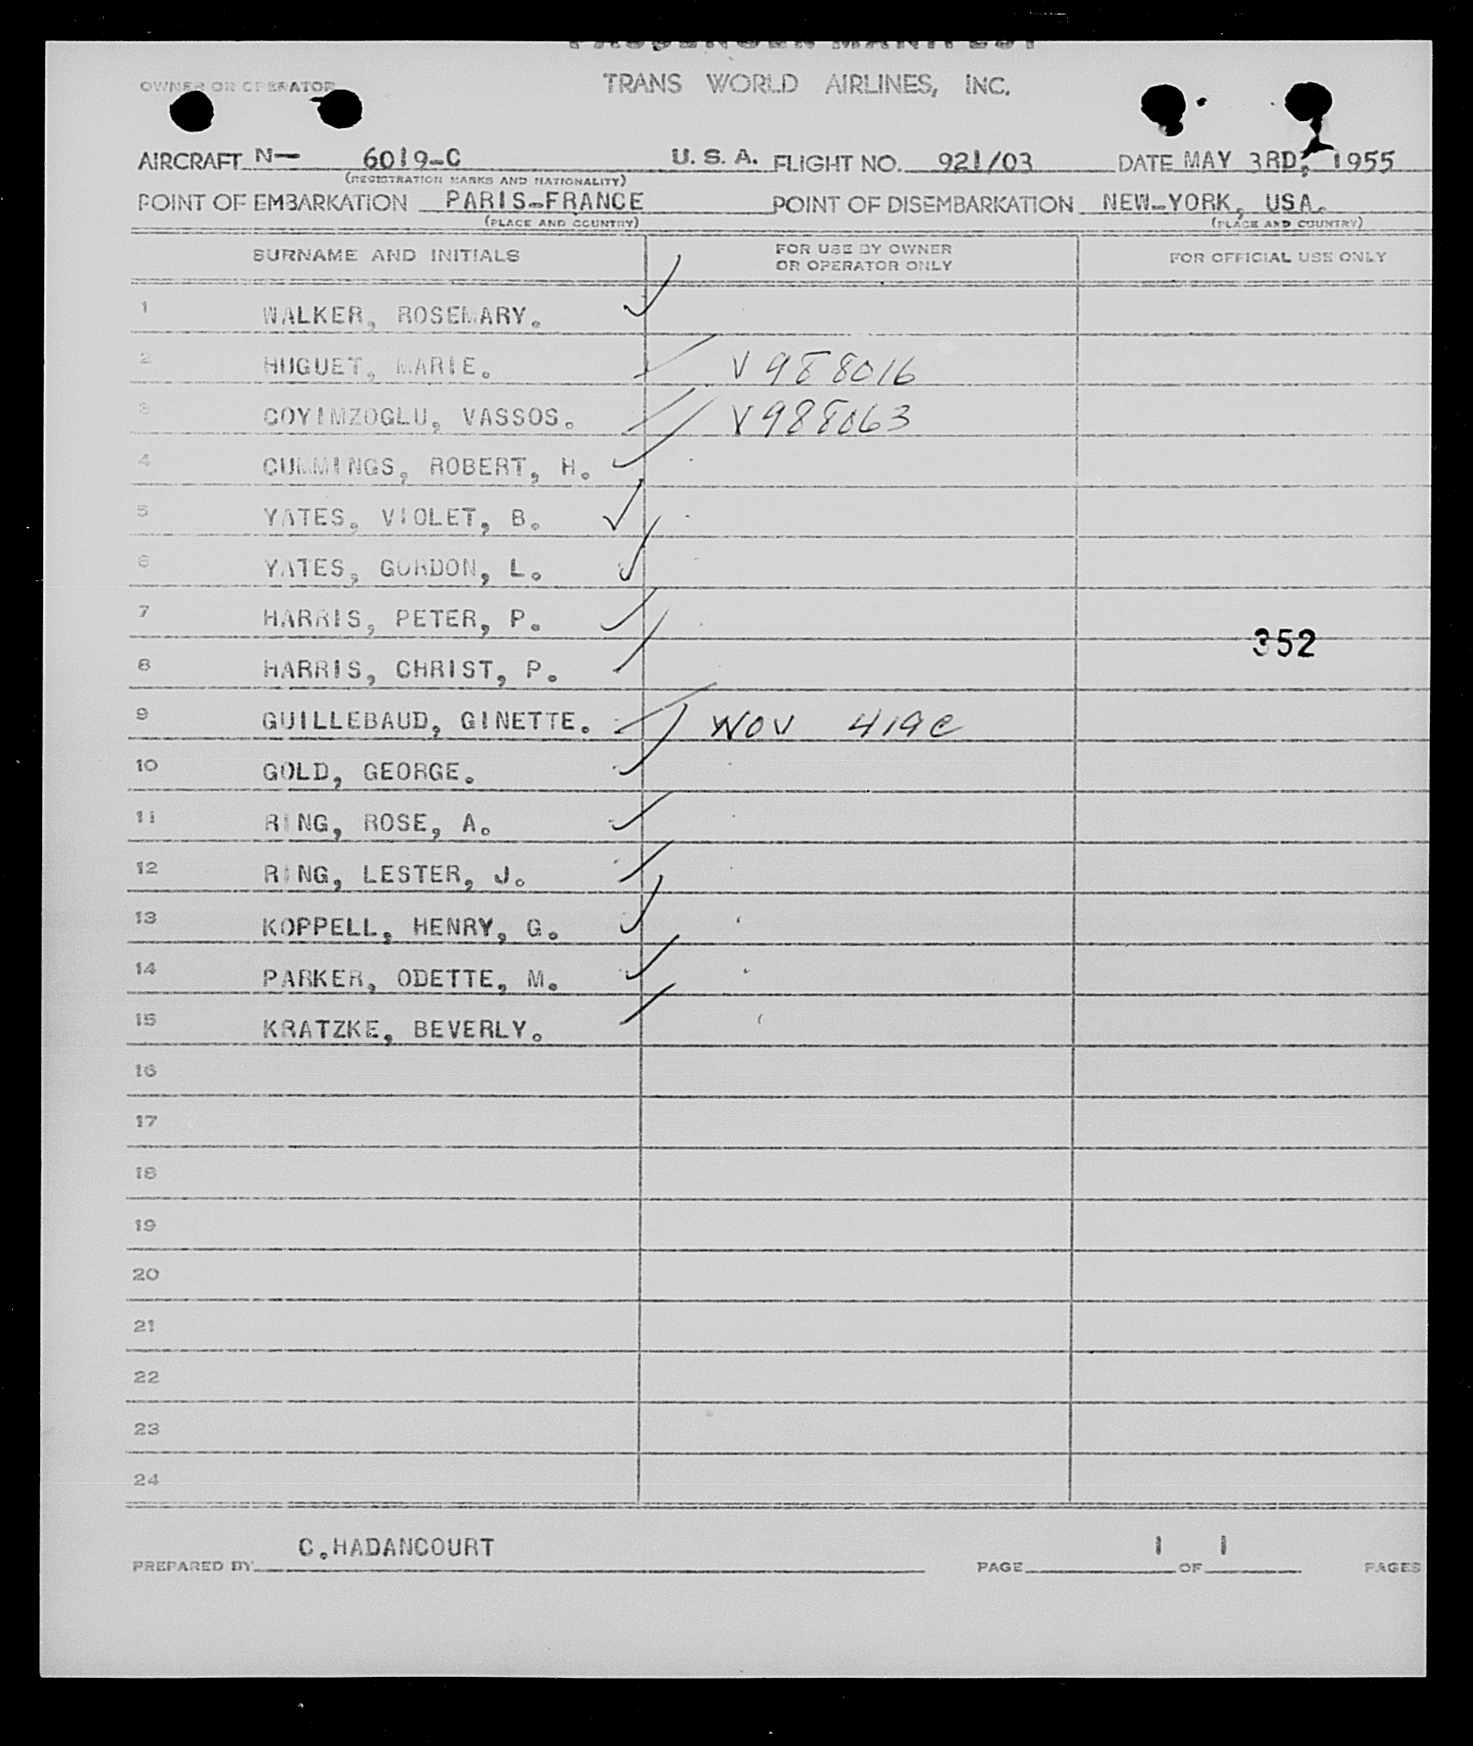 PASSENGER MANIFEST
OWNER OR OPERATOR TRANS WORLD AIRLINES, INC.
AIRCRAFT N— 6019-C U.S.A. FLIGHT NO. 921/03 DATE MAY 3RD, 1955
(REGISTRATION MARKS AND NATIONALITY)
POINT OF EMBARKATION PARIS-FRANCE POINT OF DISEMBARKATION NEW-YORK, USA.
(PLACE AND COUNTRY) (PLACE AND COUNTRY)
SURNAME AND INITIALS FOR USE BY OWNER OR OPERATOR ONLY FOR OFFICIAL USE ONLY
1 WALKER, ROSEMARY. ✓
2 HUGUET, MARIE. V 988016
3 COYIMZOGLU, VASSOS. V988063
4 CUMMINGS, ROBERT, H. ✓
5 YATES, VIOLET, B. ✓
6 YATES, GORDON, L. ✓
7 HARRIS, PETER, P. ✓
352
8 HARRIS, CHRIST, P. ✓
9 GUILLEBAUD, GINETTE. NOV 419C
10 GOLD, GEORGE. ✓
11 RING, ROSE, A. ✓
12 RING, LESTER, J. ✓
13 KOPPELL, HENRY, G. ✓
14 PARKER, ODETTE, M. ✓
15 KRATZKE, BEVERLY.
16
17
18
19
20
21
22
23
24
PREPARED BY C.HADANCOURT PAGE 1 OF 1 PAGES